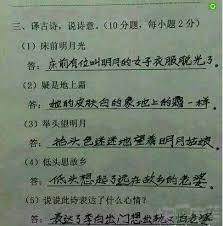 三、译古诗,说诗意。(10分题,每小题2分)
(1)床前明月光
答:床前有位叫明月的女子衣服脱光了
(2)疑是地上霜
答:她的皮肤白的象地上的霜一样。
(3)举头望明月
答:抬头色迷迷地望着明月姑娘
(4)低头思故乡
答:低头想起了远在故乡的老婆。
(5)说说此诗表达了什么心情?
答:表达了李白出门想出轨又怕老婆